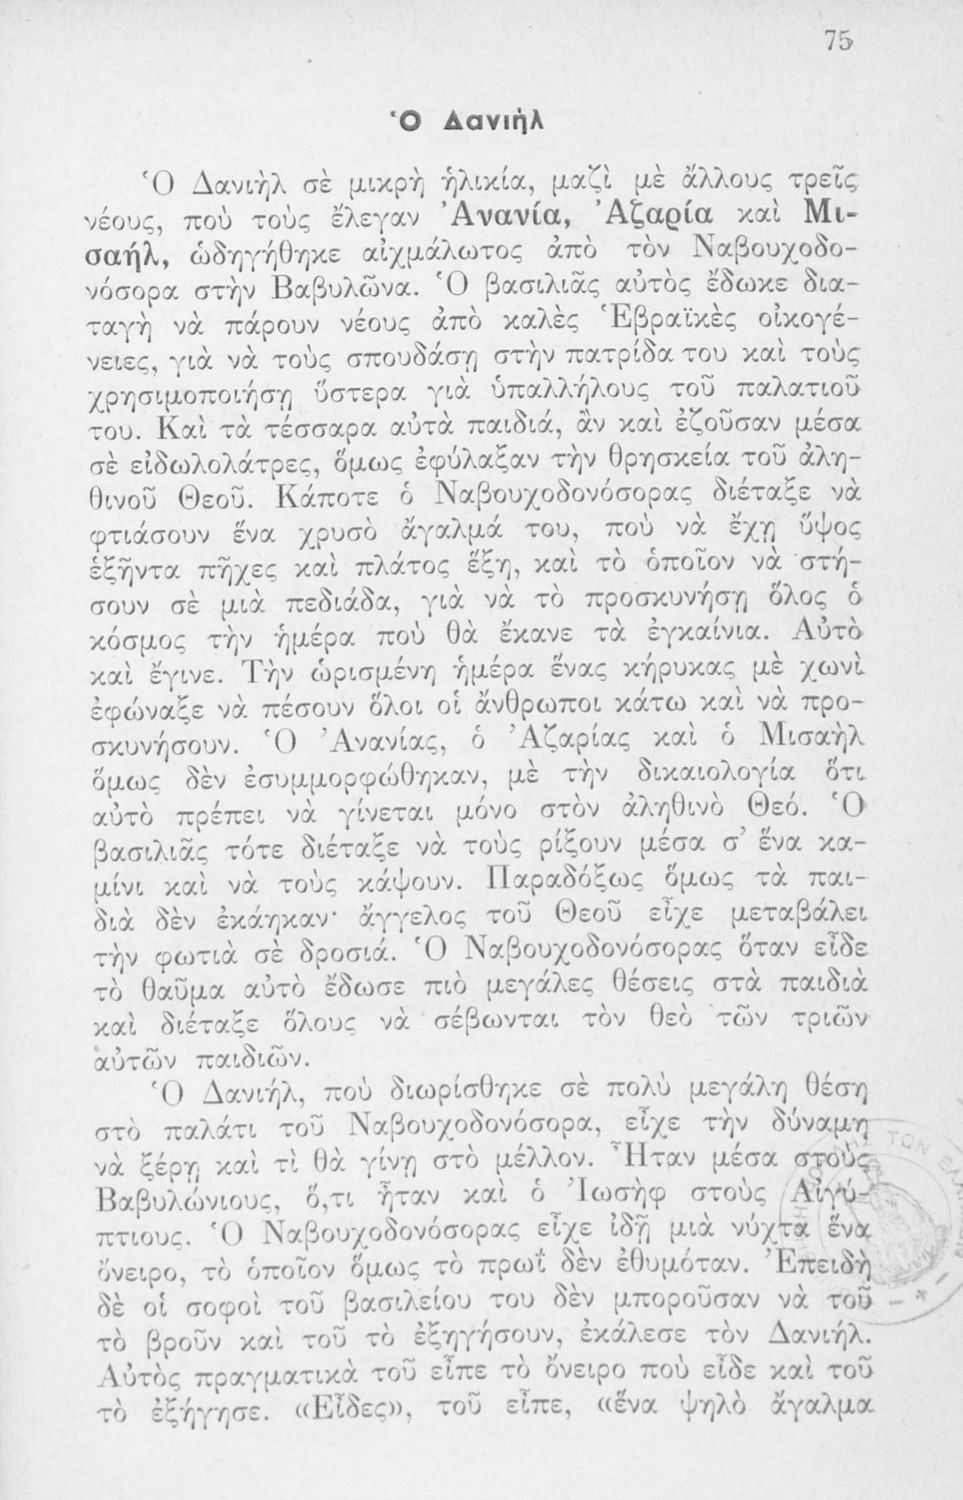 75
Ὁ Δανιὴλ
Ὁ Δανιὴλ σὲ μικρὴ ἡλικία, μαζὶ μὲ ἄλλους τρεῖς
νέους, ποὺ τοὺς ἔλεγαν Ἀνανία, Ἀζαρία καὶ Μι-
σαήλ, ὡδηγήθηκε αἰχμάλωτος ἀπὸ τὸν Ναβουχοδο-
νόσορα στὴν Βαβυλῶνα. Ὁ βασιλιᾶς αὐτὸς ἔδωκε δια-
ταγὴ νὰ πάρουν νέους ἀπὸ καλὲς Ἑβραϊκὲς οἰκογέ-
νειες, γιὰ νὰ τοὺς σπουδάσῃ στὴν πατρίδα του καὶ τοὺς
χρησιμοποιήσῃ ὕστερα γιὰ ὑπαλλήλους τοῦ παλατιοῦ
του. Καὶ τὰ τέσσαρα αὐτὰ παιδιά, ἂν καὶ ἐζοῦσαν μέσα
σὲ εἰδωλολάτρες, ὅμως ἐφύλαξαν τὴν θρησκεία τοῦ ἀλη-
θινοῦ Θεοῦ. Κάποτε ὁ Ναβουχοδονόσορας διέταξε νὰ
φτιάσουν ἕνα χρυσὸ ἄγαλμά του, ποὺ νὰ ἔχῃ ὕψος
ἑξῆντα πῆχες καὶ πλάτος ἕξη, καὶ τὸ ὁποῖον νὰ στή-
σουν σὲ μιὰ πεδιάδα, γιὰ νὰ τὸ προσκυνήσῃ ὅλος ὁ
κόσμος τὴν ἡμέρα ποὺ θὰ ἔκανε τὰ ἐγκαίνια. Αὐτὸ
καὶ ἔγινε. Τὴν ὡρισμένη ἡμέρα ἕνας κήρυκας μὲ χωνὶ
ἐφώναξε νὰ πέσουν ὅλοι οἱ ἄνθρωποι κάτω καὶ νὰ προ-
σκυνήσουν. Ὁ Ἀνανίας, ὁ Ἀζαρίας καὶ ὁ Μισαὴλ
ὅμως δὲν ἐσυμμορφώθηκαν, μὲ τὴν δικαιολογία ὅτι
αὐτὸ πρέπει νὰ γίνεται μόνο στὸν ἀληθινὸ Θεό. Ὁ
βασιλιᾶς τότε διέταξε νὰ τοὺς ρίξουν μέσα σ’ ἕνα κα-
μίνι καὶ νὰ τοὺς κάψουν. Παραδόξως ὅμως τὰ παι-
διὰ δὲν ἐκάηκαν· ἄγγελος τοῦ Θεοῦ εἶχε μεταβάλει
τὴν φωτιὰ σὲ δροσιά. Ὁ Ναβουχοδονόσορας ὅταν εἶδε
τὸ θαῦμα αὐτὸ ἔδωσε πιὸ μεγάλες θέσεις στὰ παιδιὰ
καὶ διέταξε ὅλους νὰ σέβωνται τὸν θεὸ τῶν τριῶν
αὐτῶν παιδιῶν.
Ὁ Δανιήλ, ποὺ διωρίσθηκε σὲ πολὺ μεγάλη θέση
στὸ παλάτι τοῦ Ναβουχοδονόσορα, εἶχε τὴν δύναμη
νὰ ξέρῃ καὶ τὶ θὰ γίνῃ στὸ μέλλον. Ἦταν μέσα στοὺς
Βαβυλώνιους, ὅ,τι ἦταν καὶ ὁ Ἰωσὴφ στοὺς Αἰγύ-
πτιους. Ὁ Ναβουχοδονόσορας εἶχε ἰδῆ μιὰ νύχτα ἕνα
ὄνειρο, τὸ ὁποῖον ὅμως τὸ πρωῒ δὲν ἐθυμόταν. Ἐπειδὴ
δὲ οἱ σοφοὶ τοῦ βασιλείου του δὲν μποροῦσαν νὰ τοῦ
τὸ βροῦν καὶ τοῦ τὸ ἐξηγήσουν, ἐκάλεσε τὸν Δανιήλ.
Αὐτὸς πραγματικὰ τοῦ εἶπε τὸ ὄνειρο ποὺ εἶδε καὶ τοῦ
τὸ ἐξήγησε. «Εἶδες», τοῦ εἶπε, «ἕνα ψηλὸ ἄγαλμα